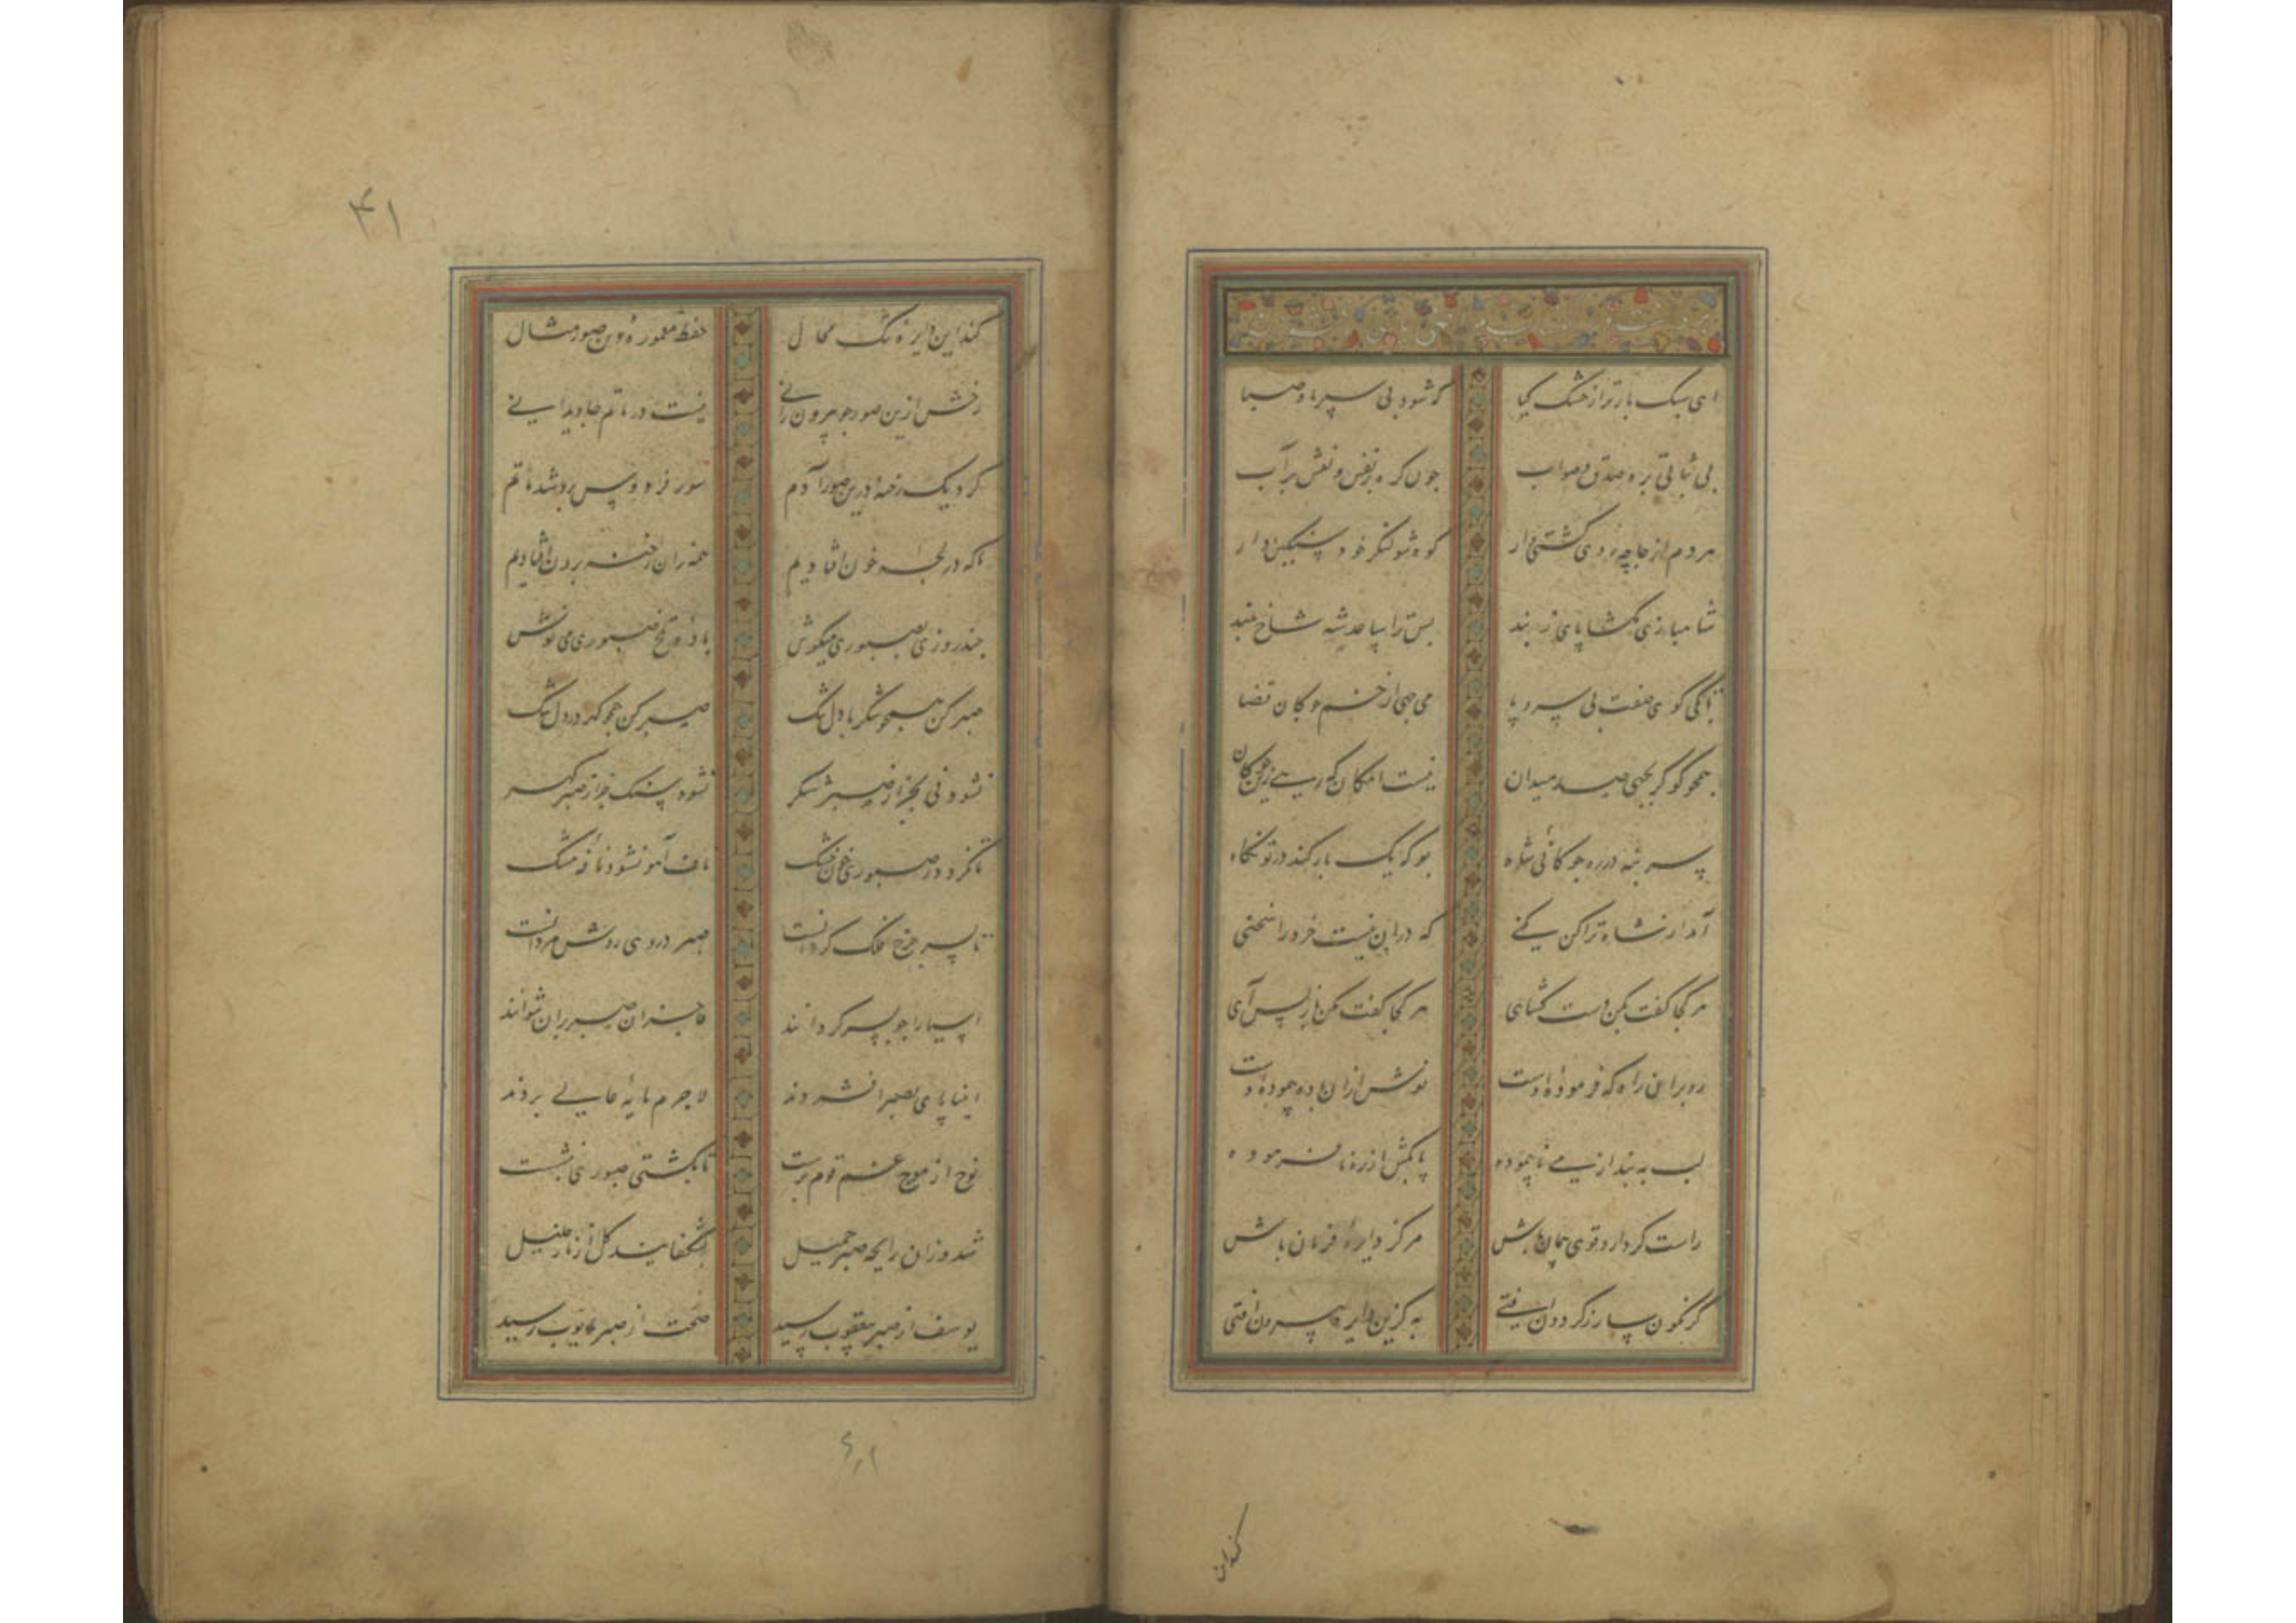 ای سبک بارتر از خشک گیا گر شود بی سپر باد صبا
بی ثباتی بره صدق و صواب چون گره بر نفس و نقش بر آب
هر دم از جا چه روی کشتی وار کوه شو لنگر خود سنگین دار
شاهبازی بگشا پای ز بند
گوی صفت بی سر و پا می جهی از خم چوکان قضا
همچو گو گر بجهی صد میدان نیست امکان که رهی زین چوکان
سر بنه در ره چوکانی شاه بو که یک بار کند در تو نگاه
که در آن نیست خرد را سخنی
هر کجا گفت بکن دست گشای هر کجا گفت مکن باز پس آی
رو بر آن راه که فرموده اوست نوش از آن باده که پیموده اوست
لب به بند از می ناپیموده پا بکش از ره نافرموده
راست کردار و قوی پیمان باش مرکز دایره فرمان باش
به کزین دایره بیرون افتی
کندان
۴۱
کند این دایره تنگ محال حفظ معموره دین صورمثال
رخش ازین صور چو بیرون رانی نیست در ماتم جاویدانی
کرد یک رخنه درین صور آدم سور فردوس برو شد ماتم
ما که در لجه خون افتادیم همه زان رخنه برون افتادیم
چند روزی بصبوری میکوش باده تلخ صبوری می نوش
صبر کن همچو شکر با دل تنگ صبر کن همچو گهر در دل سنگ
نشود نی بجز از صبر شکر نشود سنگ جز از صبر گهر
تا نگردد ز صبوری خون خشک ناف آهو نشود نافه مشک
تا بسر چرخ فلک گردانست صبر در وی روش مردانست
انبیا پای بصبر افشردند لاجرم پایه عالی بردند
نوح از موج غم قوم برست تا بکشتی صبوری بنشست
شد وزان رایحه صبر جمیل بشکفانید گل از نار خلیل
یوسف از صبر بیعقوب رسید صحت از صبر بایوب رسید